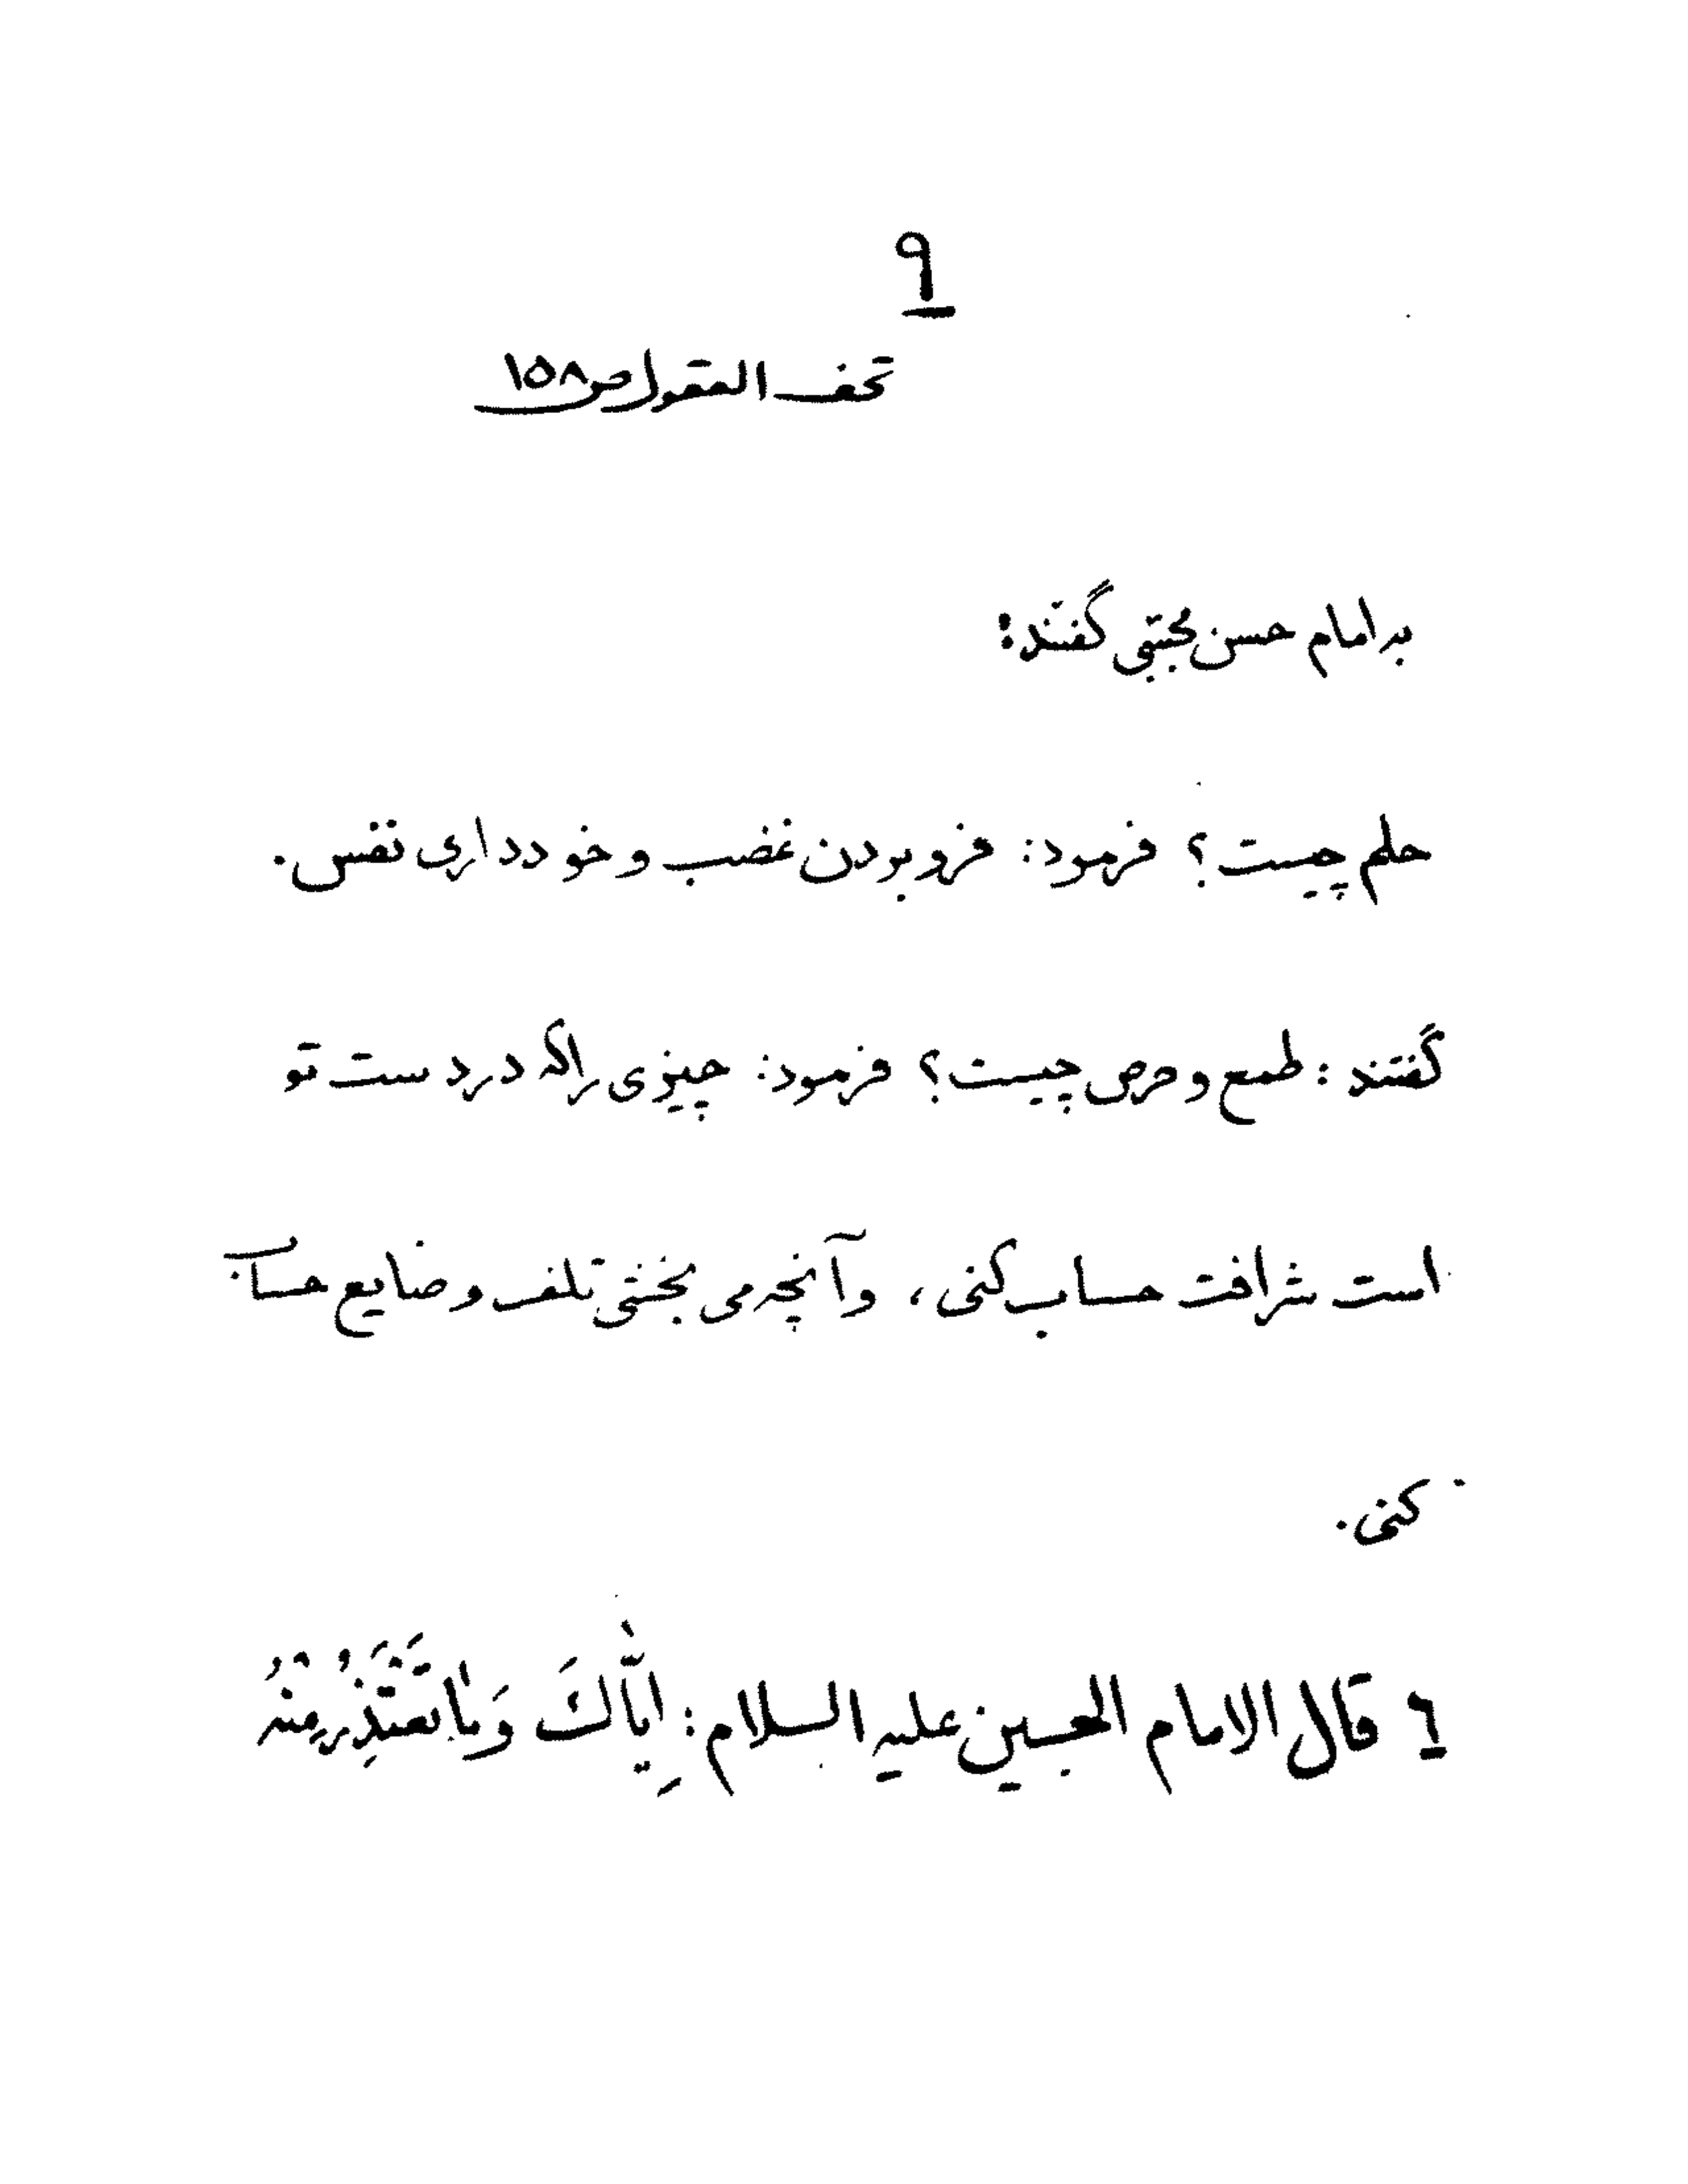 ۹
تحف العقول ص ۱۵۸
به امام حسن مجتبی گفتند:
حلم چیست؟ فرمود: فرو بردن غضب و خودداری نفس.
گفتند: طمع و حرص چیست؟ فرمود: چیزی را که در دست تو
است شرافت حساب کنی، و آنچه می بخشی تلف و ضایع حساب
کنی.
۶ قال الامام الحسین علیه السلام: اِیّاکَ وَمٰا تَعْتَذِرُ مِنْهُ